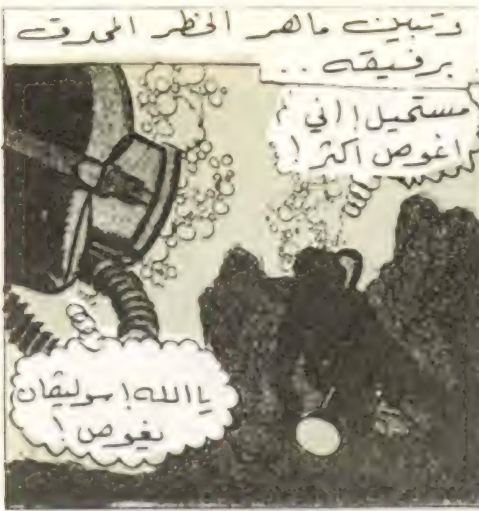 وتبين ماهر الخطر المحدق
برفيقه ..
مستحيل! اني
اغوص اكثر!
يا الله! سوليفان
يغوص!